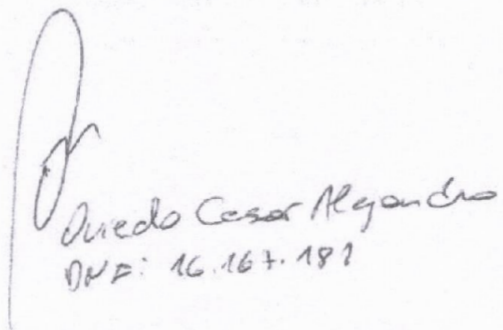 Oviedo Cesar Alejandro
DNI: 16.167.181